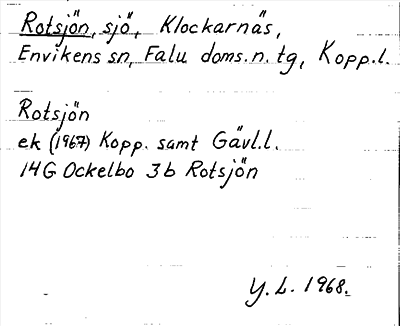 Rotsjön, sjö, Klockarnäs,
Envikens sn, Falu doms.n. tg, Kopp.l.
Rotsjön
ek (1967) Kopp. samt Gävl.l.
14G Ockelbo 3b Rotsjön
Y. L. 1968.